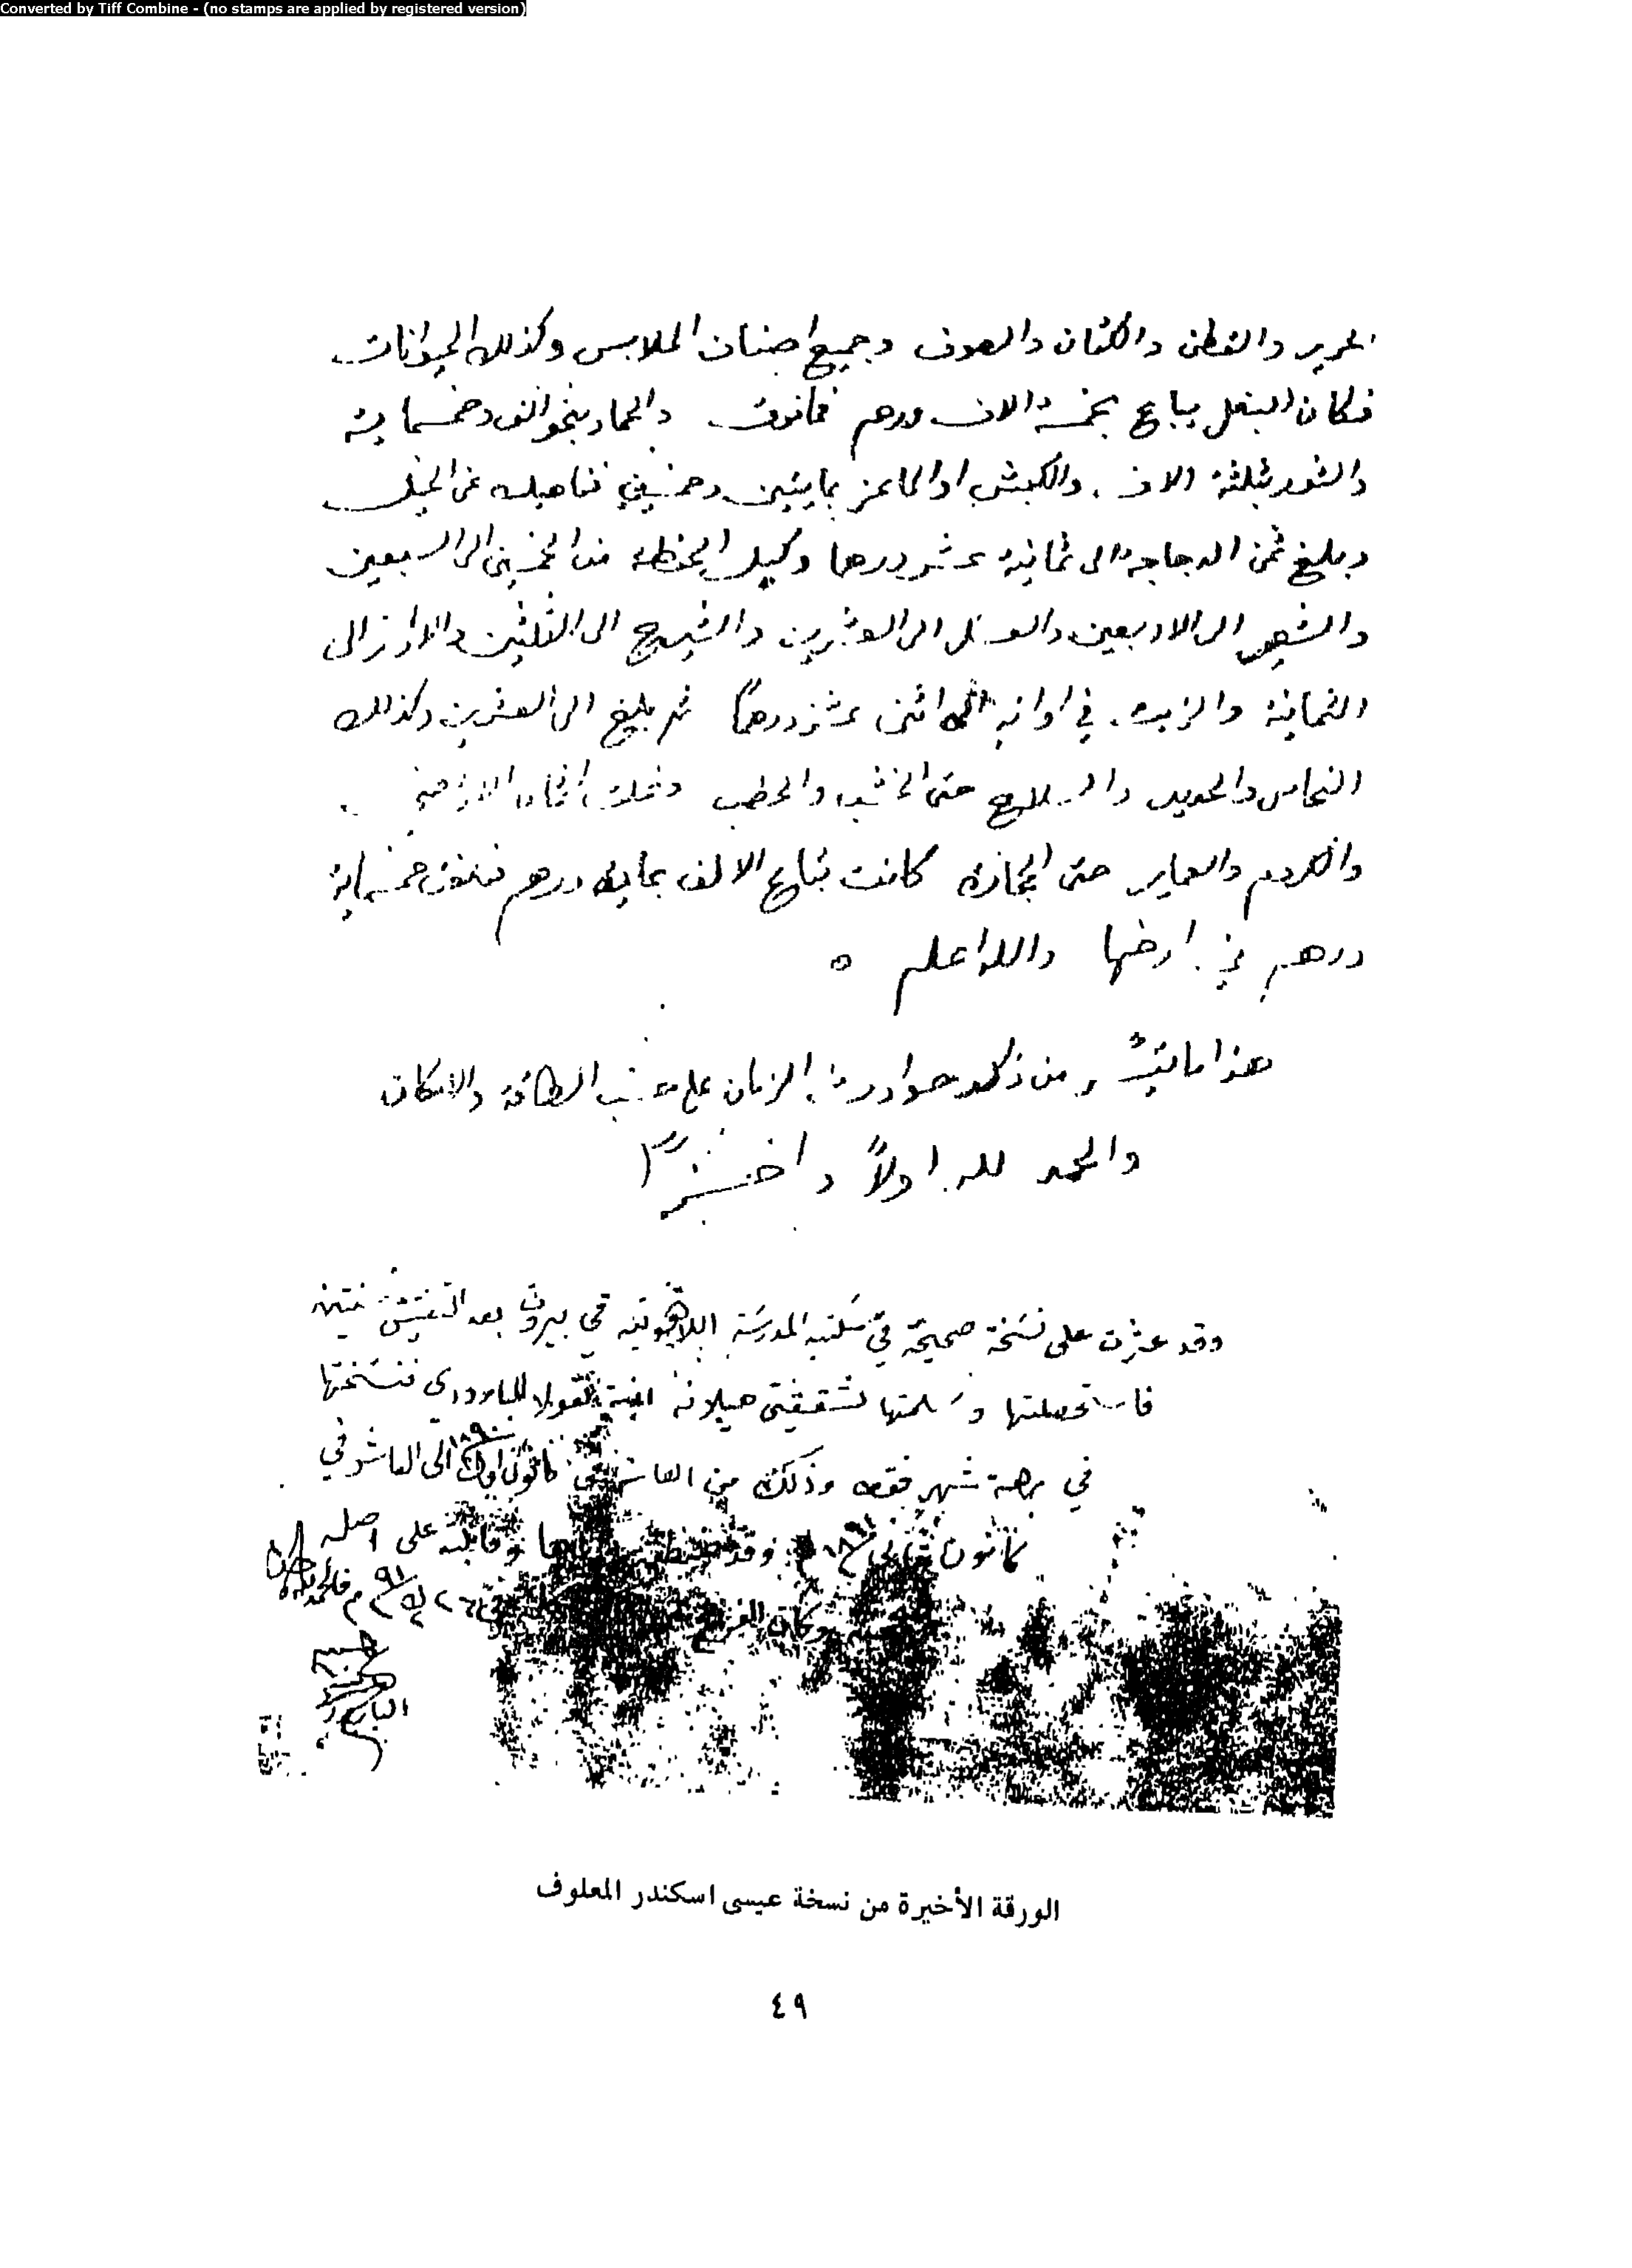 Converted by Tiff Combine - (no stamps are applied by registered version)
الحرير والقطن والكتان والصوف وجميع اصناف الملابس وكذلك الحيوانات
فكان البغل يباع بخمسة الاف درهم فما فوق والحمار بنحو الف وخمسماية
والثور بثلثة الاف والكبش او الماعز بمايتين وخمسين فناهيك عن الخيل
وبلغ ثمن الدجاجة الى ثمانية عشر درهما وكيل الحنطة من الخمسين الى السبعين
والشعير الى الاربعين والعسل الى العشرين والشيرج الى الثلثين والارز الى
الثمانية والزيت في اوانه اثنى عشر درهمًا ثم بلغ الى العشرين وكذلك
النحاس والحديد والسلاح حتى الخشب والحطب وغلت اثمان
والكروم والعماير حتى الحجارة كانت تباع الالف بماية درهم خمسماية
درهم في ارضها والله اعلم ه
هذا ما تيسّر من ذكر حوادث الزمان على حسب الطاقة والامكان
والحمد لله اولاً واخيراً
وقد عثرت على نسخة صحيحة في مكتبة المدرسة اللاهوتية في بيروت بعد التفتيش سنتين
فاستحصلتها وسلمتها لشقيقتي هيلانة ابنة نقولا البارودي فنسختها
في برهة شهر فقط وذلك من العاشر في كانون اول ١٨٩٠ الى العاشر في
كانون ثاني وقد وقابلته على اصله
وكان الفراغ في ٢٦ ك٢ ٩١ م فالحمد لله
البارودي
الورقة الأخيرة من نسخة عيسى اسكندر المعلوف
٤٩